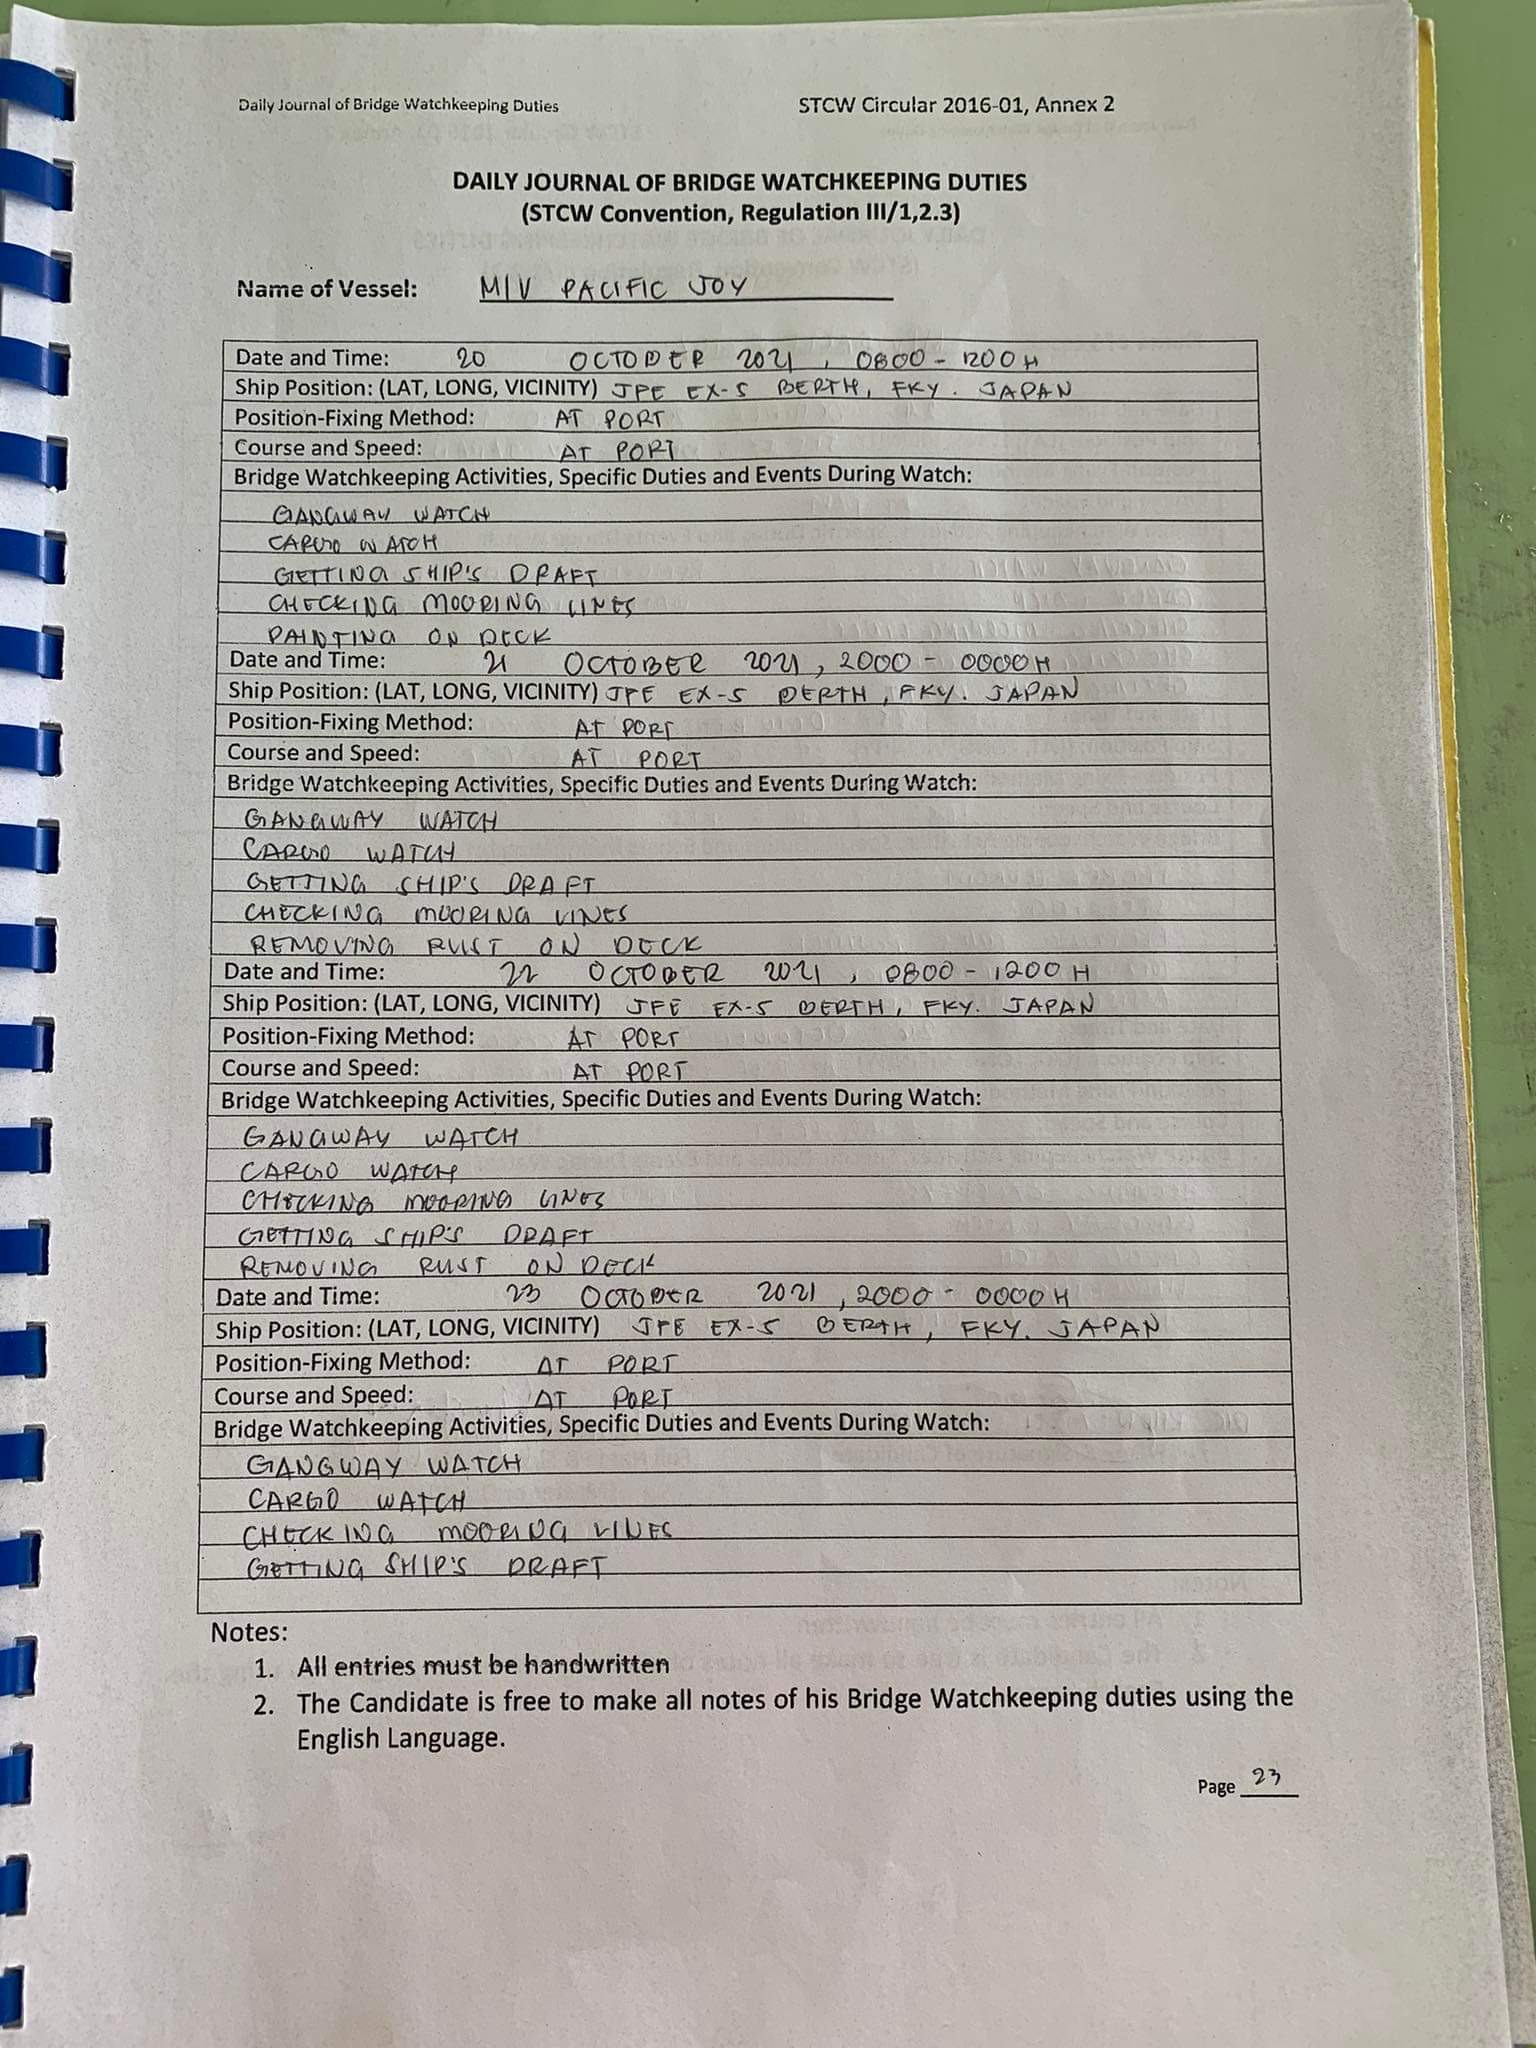 Daily Journal of Bridge Watchkeeping Duties STCW Circular 2016-01, Annex 2
DAILY JOURNAL OF BRIDGE WATCHKEEPING DUTIES
(STCW Convention, Regulation III/1,2.3)
Name of Vessel: M/V PACIFIC JOY
Date and Time: 20 OCTOBER 2021, 0800 - 1200H
Ship Position: (LAT, LONG, VICINITY) JFE EX-5 BERTH, FKY. JAPAN
Position-Fixing Method: AT PORT
Course and Speed: AT PORT
Bridge Watchkeeping Activities, Specific Duties and Events During Watch:
GANGWAY WATCH
CARGO WATCH
GETTING SHIP'S DRAFT
CHECKING MOORING LINES
PAINTING ON DECK
Date and Time: 21 OCTOBER 2021, 2000 - 0000H
Ship Position: (LAT, LONG, VICINITY) JFE EX-5 BERTH, FKY. JAPAN
Position-Fixing Method: AT PORT
Course and Speed: AT PORT
Bridge Watchkeeping Activities, Specific Duties and Events During Watch:
GANGWAY WATCH
CARGO WATCH
GETTING SHIP'S DRAFT
CHECKING MOORING LINES
REMOVING RUST ON DECK
Date and Time: 22 OCTOBER 2021, 0800 - 1200H
Ship Position: (LAT, LONG, VICINITY) JFE EX-5 BERTH, FKY. JAPAN
Position-Fixing Method: AT PORT
Course and Speed: AT PORT
Bridge Watchkeeping Activities, Specific Duties and Events During Watch:
GANGWAY WATCH
CARGO WATCH
CHECKING MOORING LINES
GETTING SHIP'S DRAFT
REMOVING RUST ON DECK
Date and Time: 23 OCTOBER 2021, 2000 - 0000H
Ship Position: (LAT, LONG, VICINITY) JFE EX-5 BERTH, FKY. JAPAN
Position-Fixing Method: AT PORT
Course and Speed: AT PORT
Bridge Watchkeeping Activities, Specific Duties and Events During Watch:
GANGWAY WATCH
CARGO WATCH
CHECKING MOORING LINES
GETTING SHIP'S DRAFT
Notes:
1. All entries must be handwritten
2. The Candidate is free to make all notes of his Bridge Watchkeeping duties using the
English Language.
Page 23